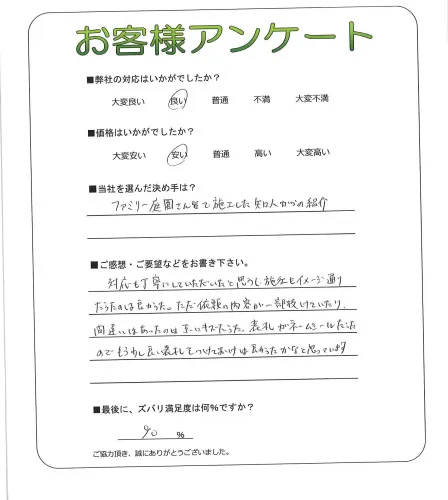 お客様アンケート
■弊社の対応はいかがでしたか？
大変良い 良い 普通 不満 大変不満
■価格はいかがでしたか？
大変安い 安い 普通 高い 大変高い
■当社を選んだ決め手は？
ファミリー庭園さんで施工した知人からの紹介
■ご感想・ご要望などをお書き下さい。
対応も丁寧にしていただいたと思うし、施工もイメージ通り
だったのは良かった。ただ依頼の内容が一部抜けていたり、
間違いはあったのは 表札がネームシールだった
のでもう少し良い表札をつけておけば良かったかなと思っています
■最後に、ズバリ満足度は何％ですか？
90 %
ご協力頂き、誠にありがとうございました。